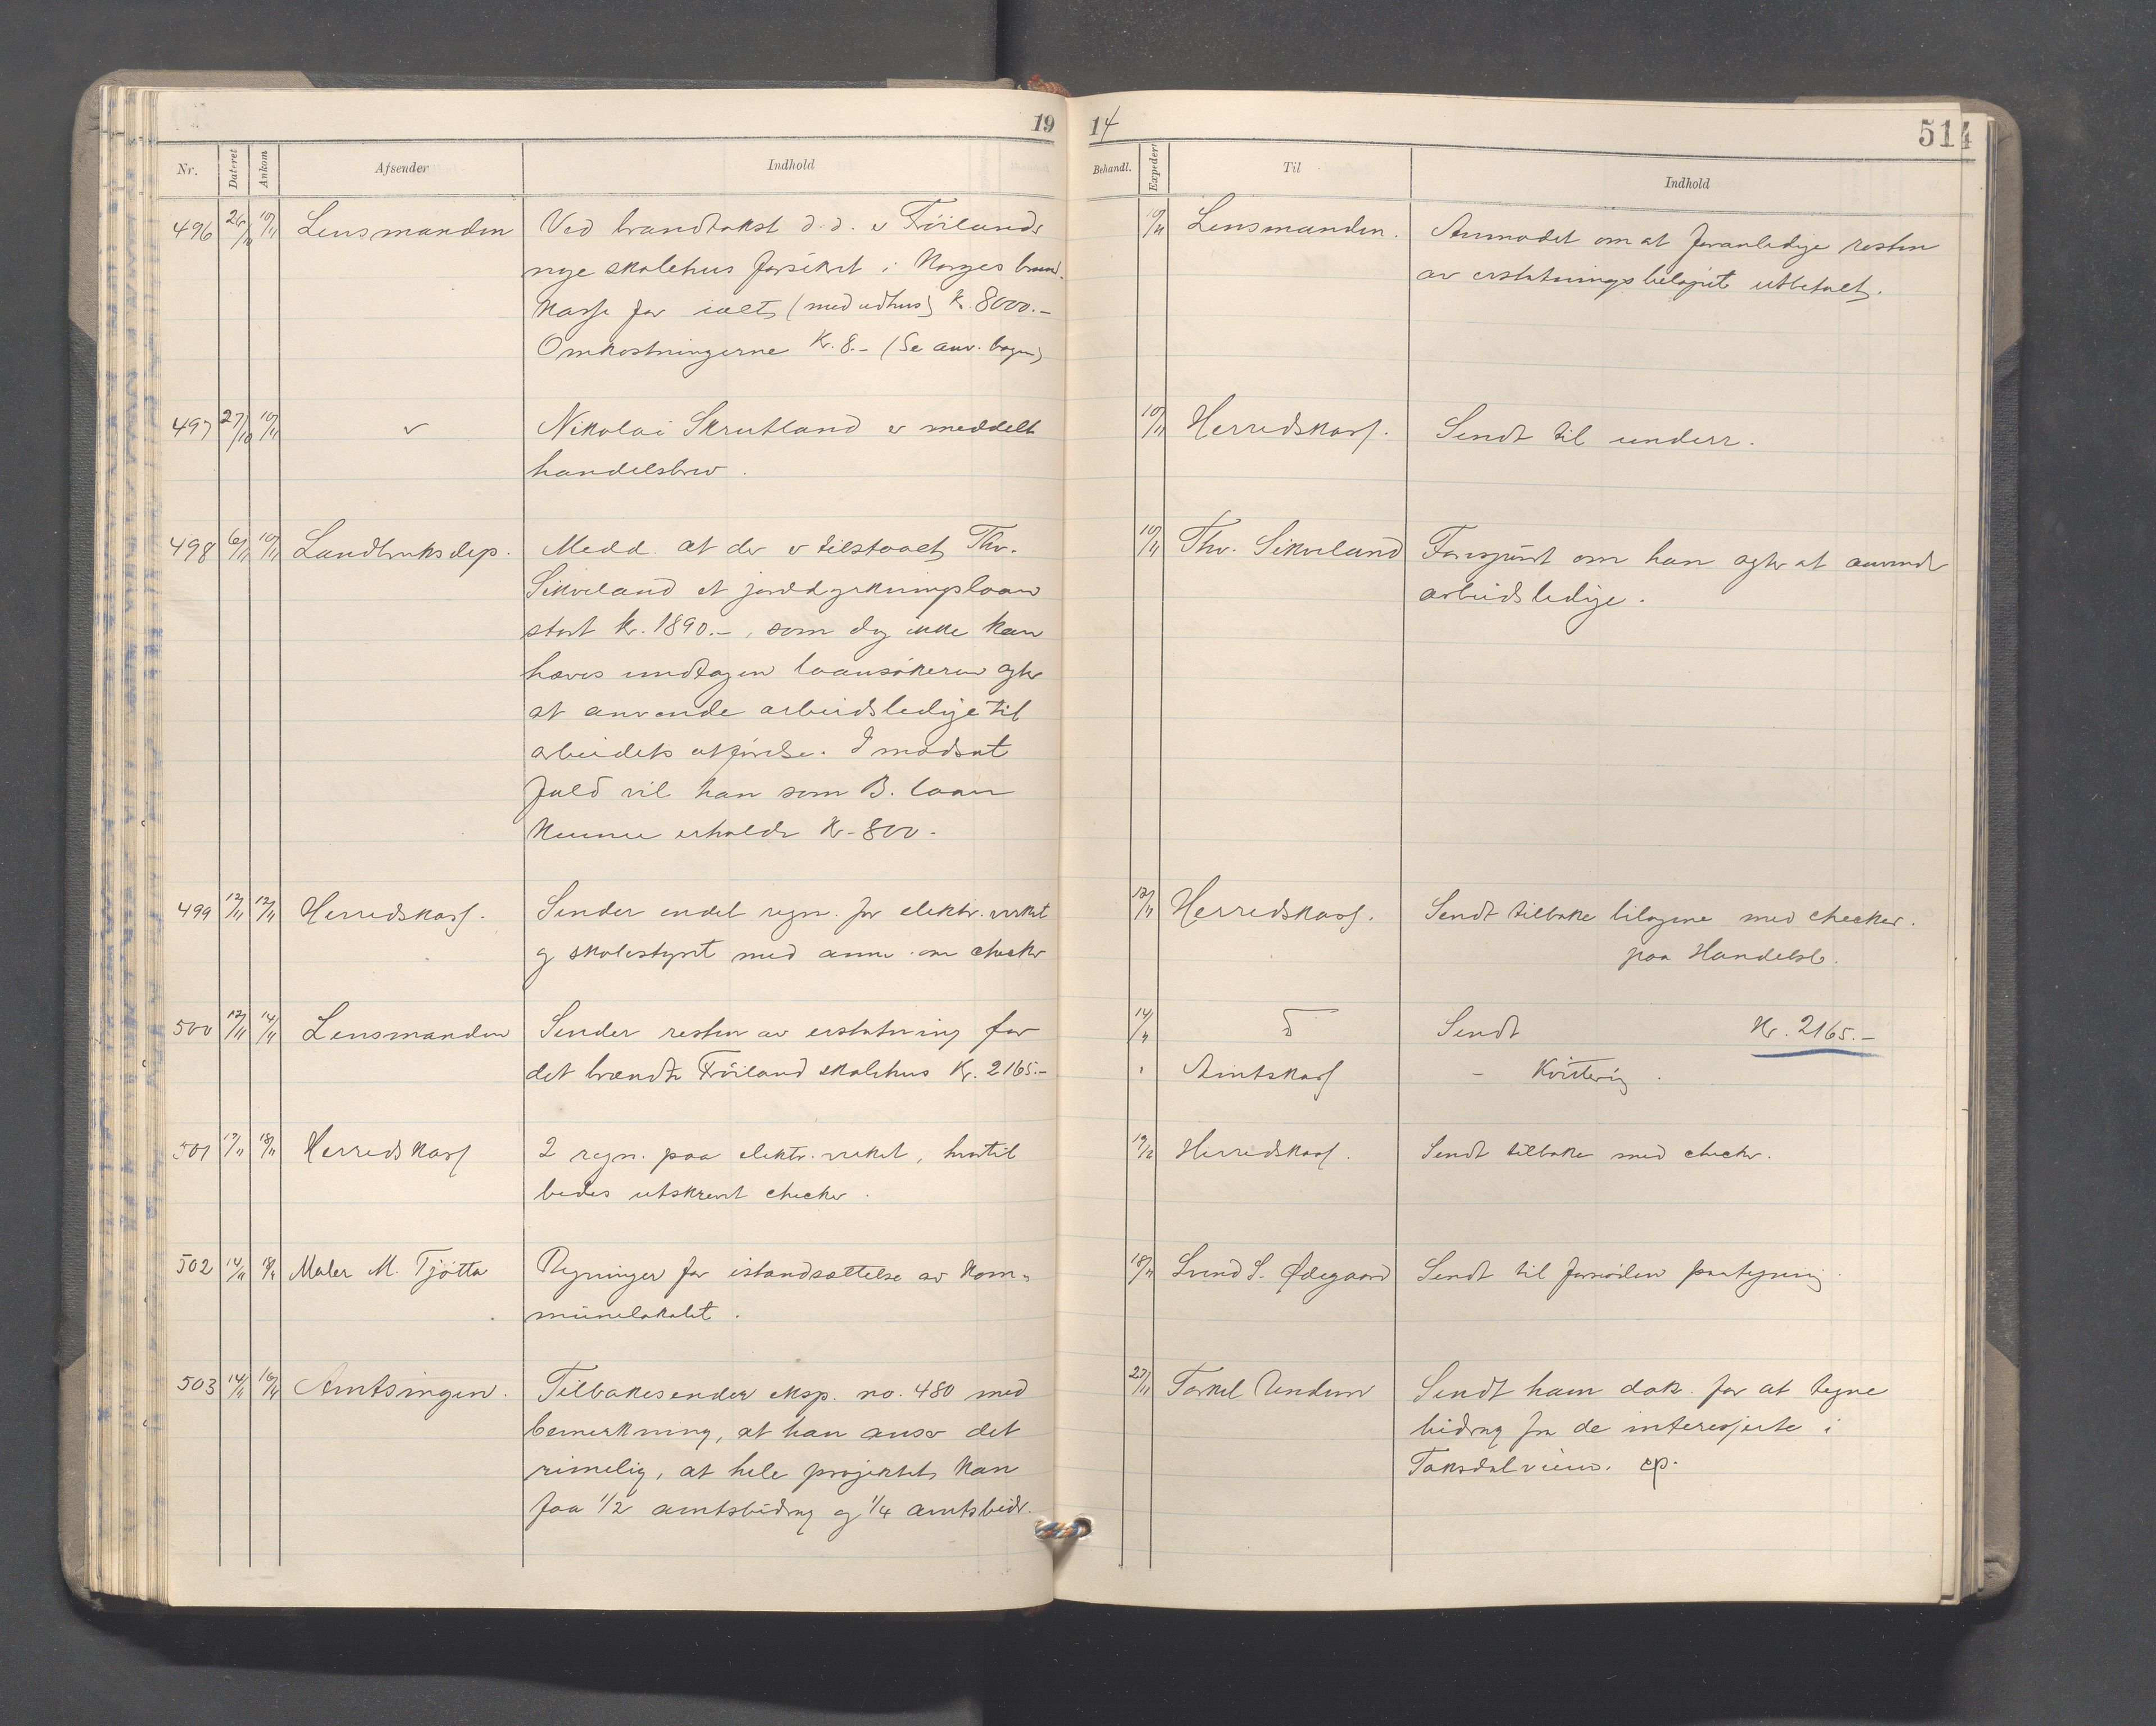 19
14
514
Nr.
Dateret
Ankom
Afsender
Indhold
Behandl.
Expedert
Til
Indhold
496 26/10 10/11 Lensmanden Ved brandtakst d.d. er Frøilands
nye skolehus forsikret i Norges brand-
kasse for ialt (med udhus) kr. 8000.-
Omkostningerne kr. 8.- (Se anv. bogen)
10/11 Lensmanden. Anmodet om at foranledige resten
av erstatningsbeløpet utbetalt.
497 27/10 10/11 " Nikolai Skrutland er meddelt
handelsbrev.
10/11 Herredskass. Sendt til underr.
498 6/11 10/11 Landbruksdep. Medd. at der er tilstaaet Thv.
Sikveland et jorddyrkningslaan
stort kr. 1890.-, som dog ikke kan
hæves undtagen laansøkeren agter
at anvende arbeidsledige til
arbeidets utførelse. I modsat
fald vil han som B. laan
kunne erholde kr. 800.-
10/11 Thv. Sikveland Forespurt om han agter at anvende
arbeidsledige.
499 12/11 12/11 Herredskass. Sender endel regn. for elektr. verket
og skolestyret med anm. om checker
12/11 Herredskass. Sendt tilbake bilagene med checker.
paa Handelsb.
500 12/11 14/11 Lensmanden Sender resten av erstatning for
det brændte Frøiland skolehus Kr. 2165.-
14/11 D Sendt Kr. 2165.-
" Amtskass - Kvittering.
501 17/11 18/11 Herredskass 2 regn. paa elektr. verket, hvortil
bedes utskrevet checker.
19/11 Herredskass. Sendt tilbake med checker.
502 14/11 18/11 Maler M. Tjøtta Regninger for istandsættelse av kom-
munelokalet.
18/11 Svend S. Ødegaard Sendt til fornøden paategning.
503 14/11 16/11 Amtsingen. Tilbakesender eksp. no. 480 med
bemerkning, at han anser det
rimelig, at hele projektet kan
faa 1/2 amtsbidrag og 1/4 amtsbidr.
23/11 Torkel Undem Sendt ham dok. for at tegne
bidrag fra de interesserte i
Taksdalveien. ep.